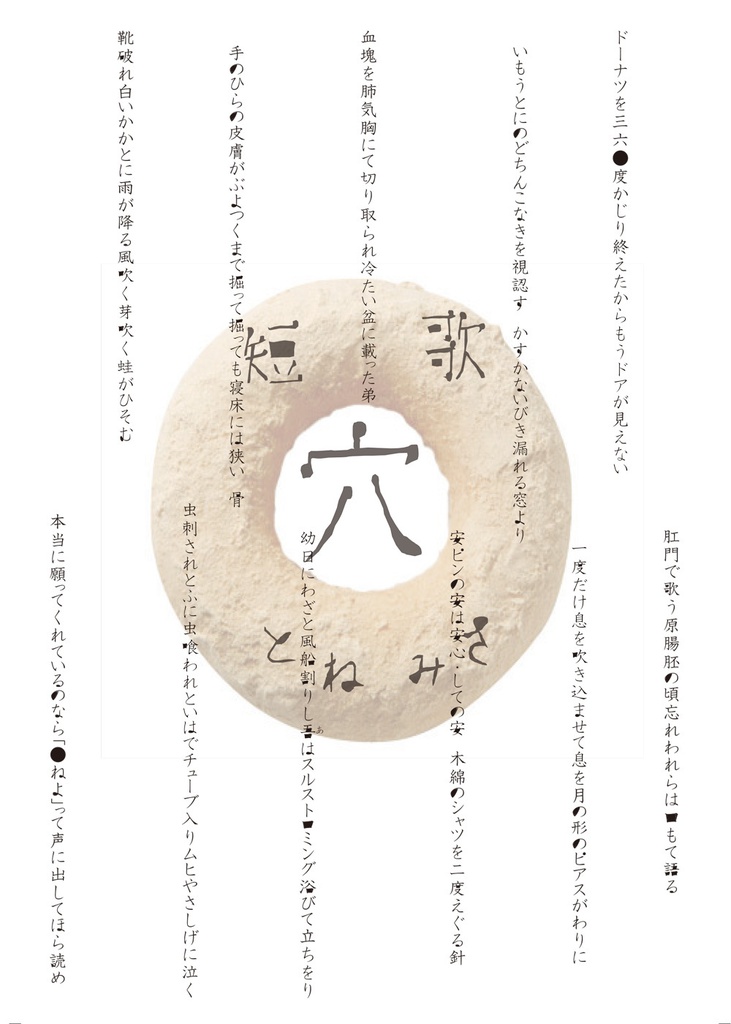 短歌
穴
とねみさ
肛門で歌う原腸胚の頃忘れわれらは口もて語る
ドーナツを三六●度かじり終えたからもうドアが見えない
一度だけ息を吹き込ませて息を月の形のピアスがわりに
いもうとにのどちんこなきを視認す　かすかないびき漏れる窓より
安ピンの安は安心・しての安　木綿のシャツを二度えぐる針
血塊を肺気胸にて切り取られ冷たい盆に載った弟
幼日にわざと風船割りし吾はスルストロミング浴びて立ちをり
あ
手のひらの皮膚がぶよつくまで掘って掘っても寝床には狭い　骨
虫刺されとふに虫喰われといはでチューブ入りムヒやさしげに泣く
靴破れ白いかかとに雨が降る風吹く芽吹く蛙がひそむ
本当に願ってくれているのなら「●ねよ」って声に出してほら読め